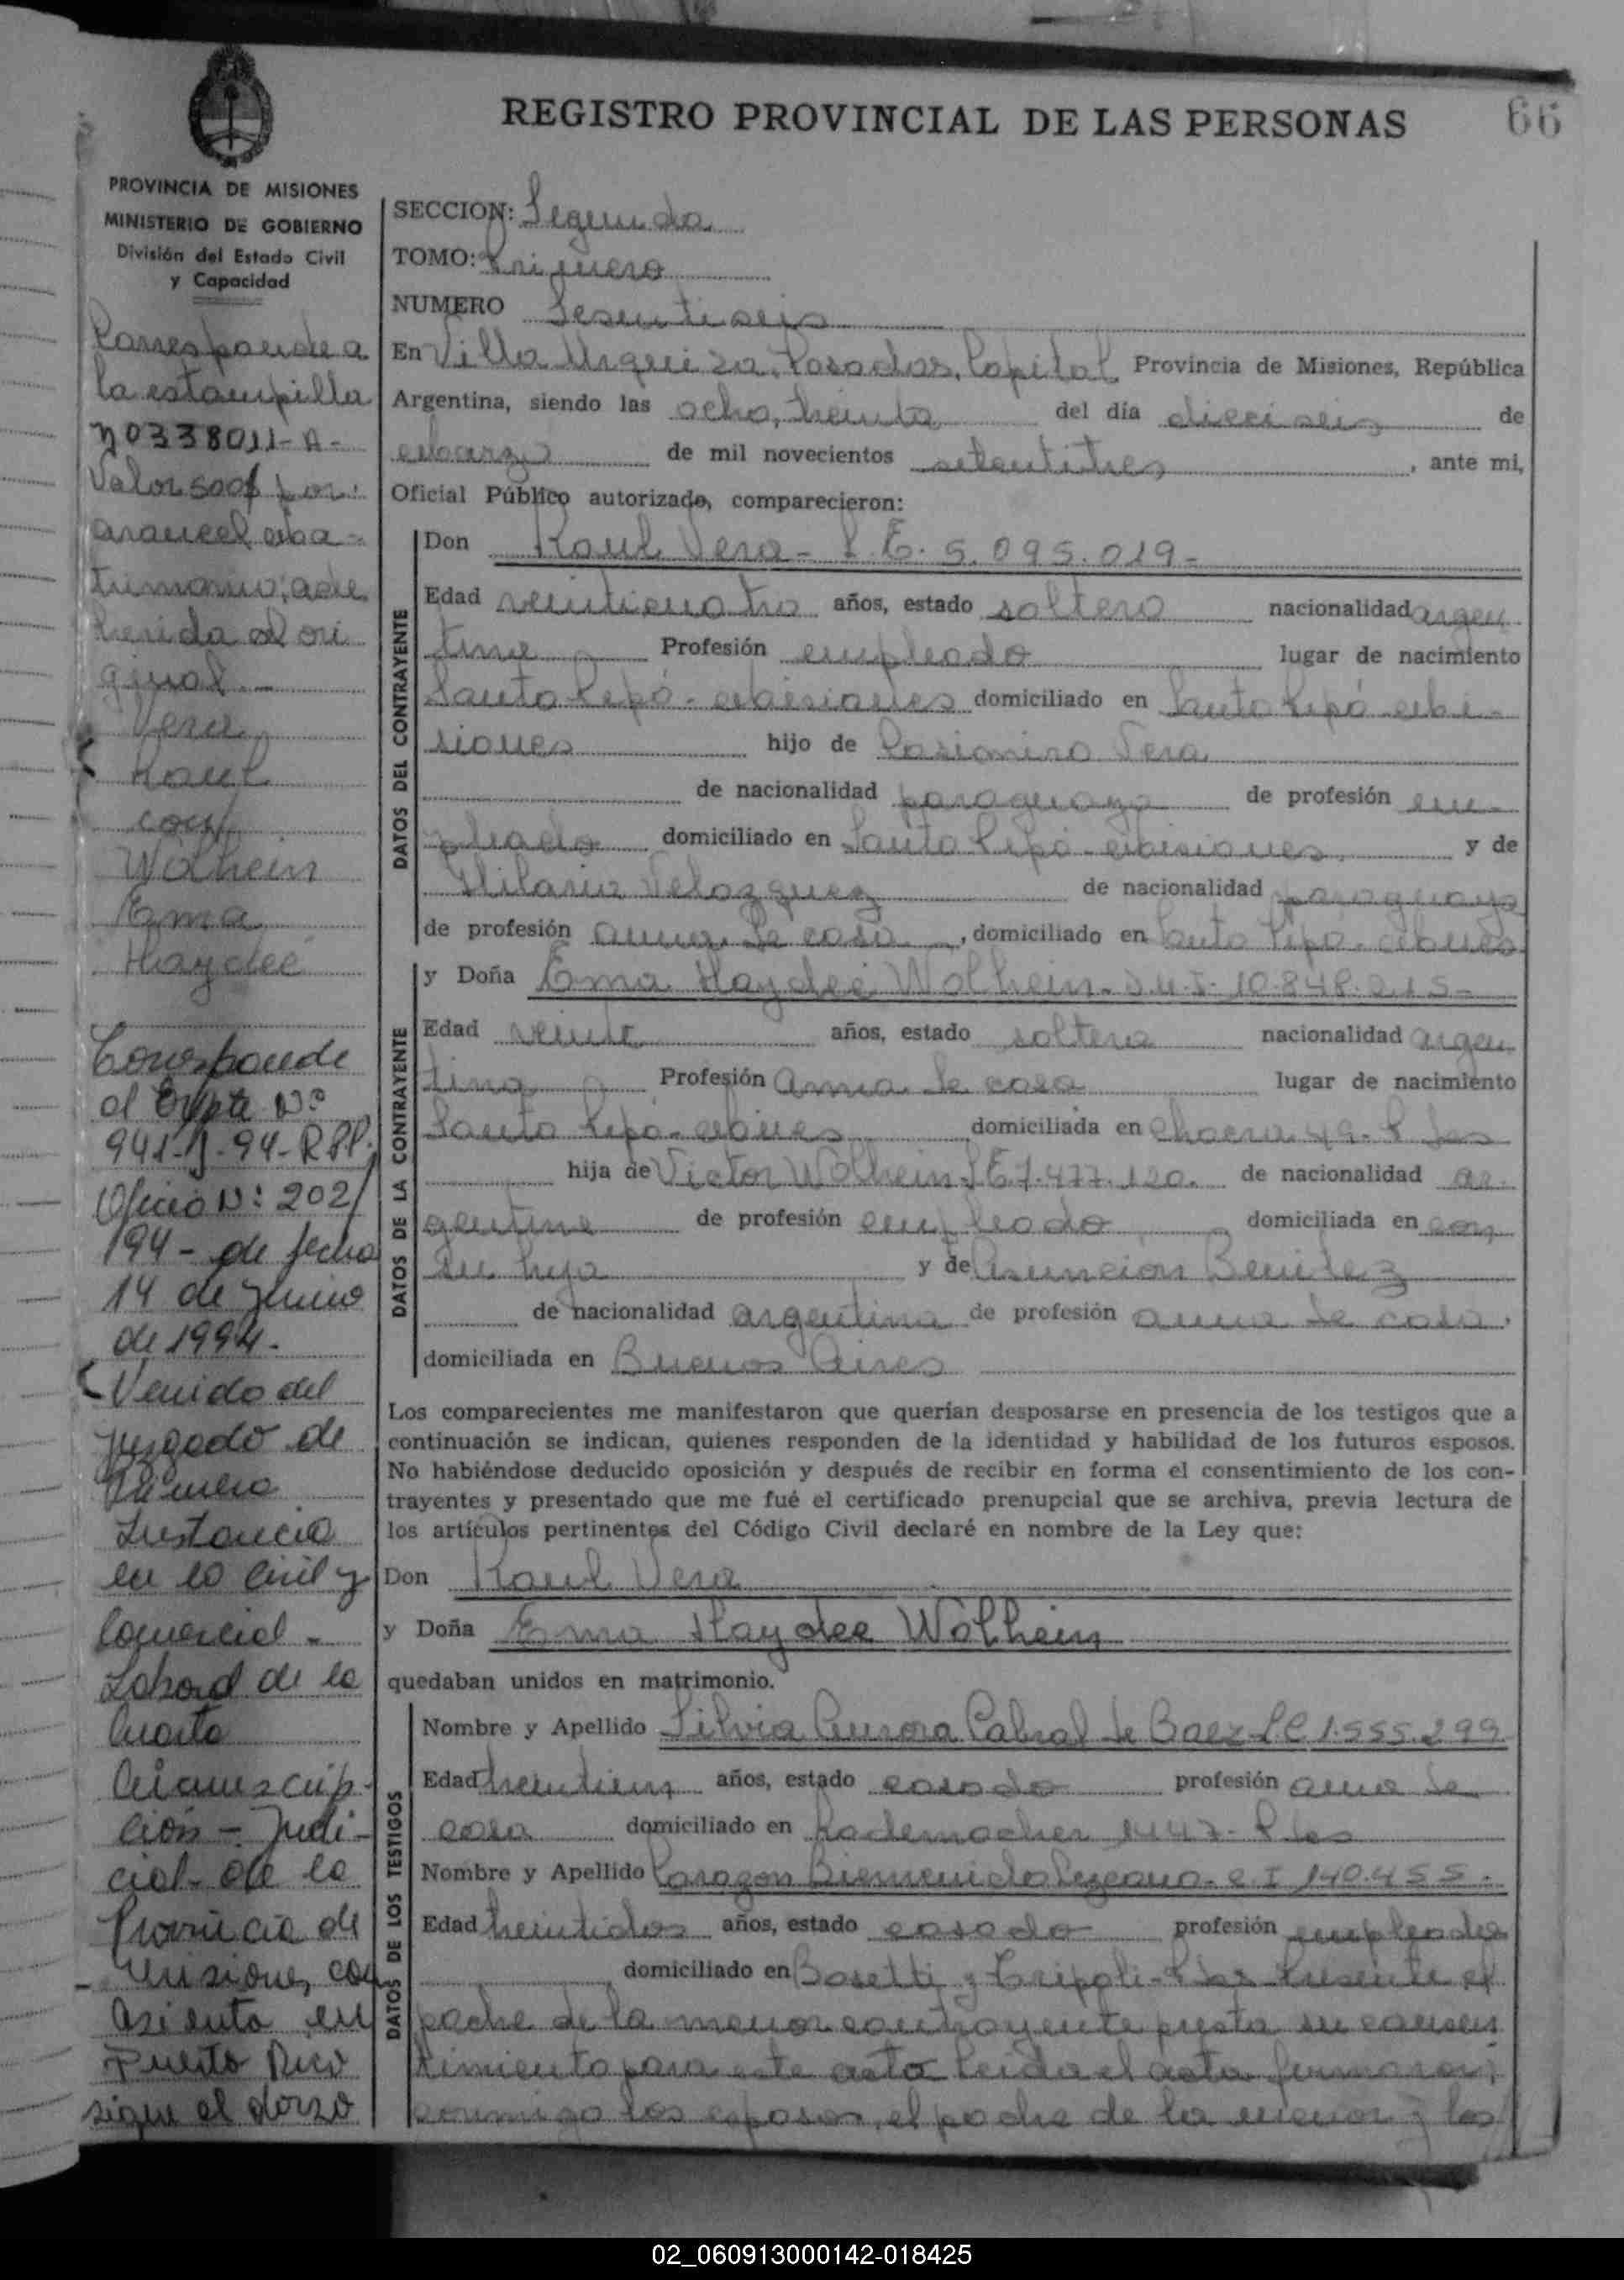 REGISTRO PROVINCIAL DE LAS PERSONAS
66
PROVINCIA DE MISIONES
MINISTERIO DE GOBIERNO
División del Estado Civil
y Capacidad
Corresponde a
la estampilla
Nº 0338011-A-
Valor 500$ por
arancel ma-
trimonio, ade
herida al ori
ginal.-
Vera
Raul
con
Wolhein
Ema
Haydeé
Corresponde
al Expte Nº
941- -94-RPP.
Oficio Nº: 202/
194- de fecha
14 de Junio
de 1994.-
Venido del
Juzgado de
Primera
Instancia
en lo Civil y
Comercial -
Laboral de la
Cuarta
Circunscrip-
ción - Judi-
cial- de la
Provincia de
Misiones, con
asiento en
Puerto Rico
sigue al dorso
SECCION: Segunda
TOMO: Primero
NUMERO Sesentiseis
En Villa Urquiza, Posadas, Capital Provincia de Misiones, República
Argentina, siendo las ocho, treinta del día dieciseis de
marzo de mil novecientos setentitres, ante mi,
Oficial Público autorizado, comparecieron:
DATOS DEL CONTRAYENTE
Don Raul Vera - L.E. 5.095.019-
Edad veinticuatro años, estado soltero nacionalidad argen
tina Profesión empleado lugar de nacimiento
Santo Pipó - Misiones domiciliado en Santo Pipó - Mi-
siones hijo de Casimiro Vera
de nacionalidad paraguaya de profesión em-
pleado domiciliado en Santo Pipó - Misiones y de
Hilaria Velazquez de nacionalidad paraguaya
de profesión ama de casa, domiciliado en Santo Pipó - Mnes
DATOS DE LA CONTRAYENTE
y Doña Ema Haydeé Wolhein - D.N.I. 10.848.215-
Edad veinte años, estado soltera nacionalidad argen
tina Profesión ama de casa lugar de nacimiento
Santo Pipó - Mnes domiciliada en Chacra 49 - P. das
hija de Victor Wolhein L.E 7.477.120. de nacionalidad ar-
gentina de profesión empleado domiciliada en con
su hija y de Asunción Benitez
de nacionalidad argentina de profesión ama de casa,
domiciliada en Buenos Aires
Los comparecientes me manifestaron que querían desposarse en presencia de los testigos que a
continuación se indican, quienes responden de la identidad y habilidad de los futuros esposos.
No habiéndose deducido oposición y después de recibir en forma el consentimiento de los con-
trayentes y presentado que me fué el certificado prenupcial que se archiva, previa lectura de
los artículos pertinentes del Código Civil declaré en nombre de la Ley que:
Don Raul Vera
y Doña Ema Haydee Wolhein
quedaban unidos en matrimonio.
DATOS DE LOS TESTIGOS
Nombre y Apellido Silvia Aurora Cabral de Baez L.C 1.555.299
Edad treintiun años, estado casado profesión ama de
casa domiciliado en Rademacher 1447- P.das
Nombre y Apellido Bienvenido Lezcano - C.I 140.455.
Edad treintidos años, estado casado profesión empleado
domiciliado en Bosetti y Tripoli - P.das Presente el
padre de la menor contrayente presta su consen
timiento para este acto Leida el acta firmaron
conmigo los esposos, el padre de la menor y los
02_060913000142-018425